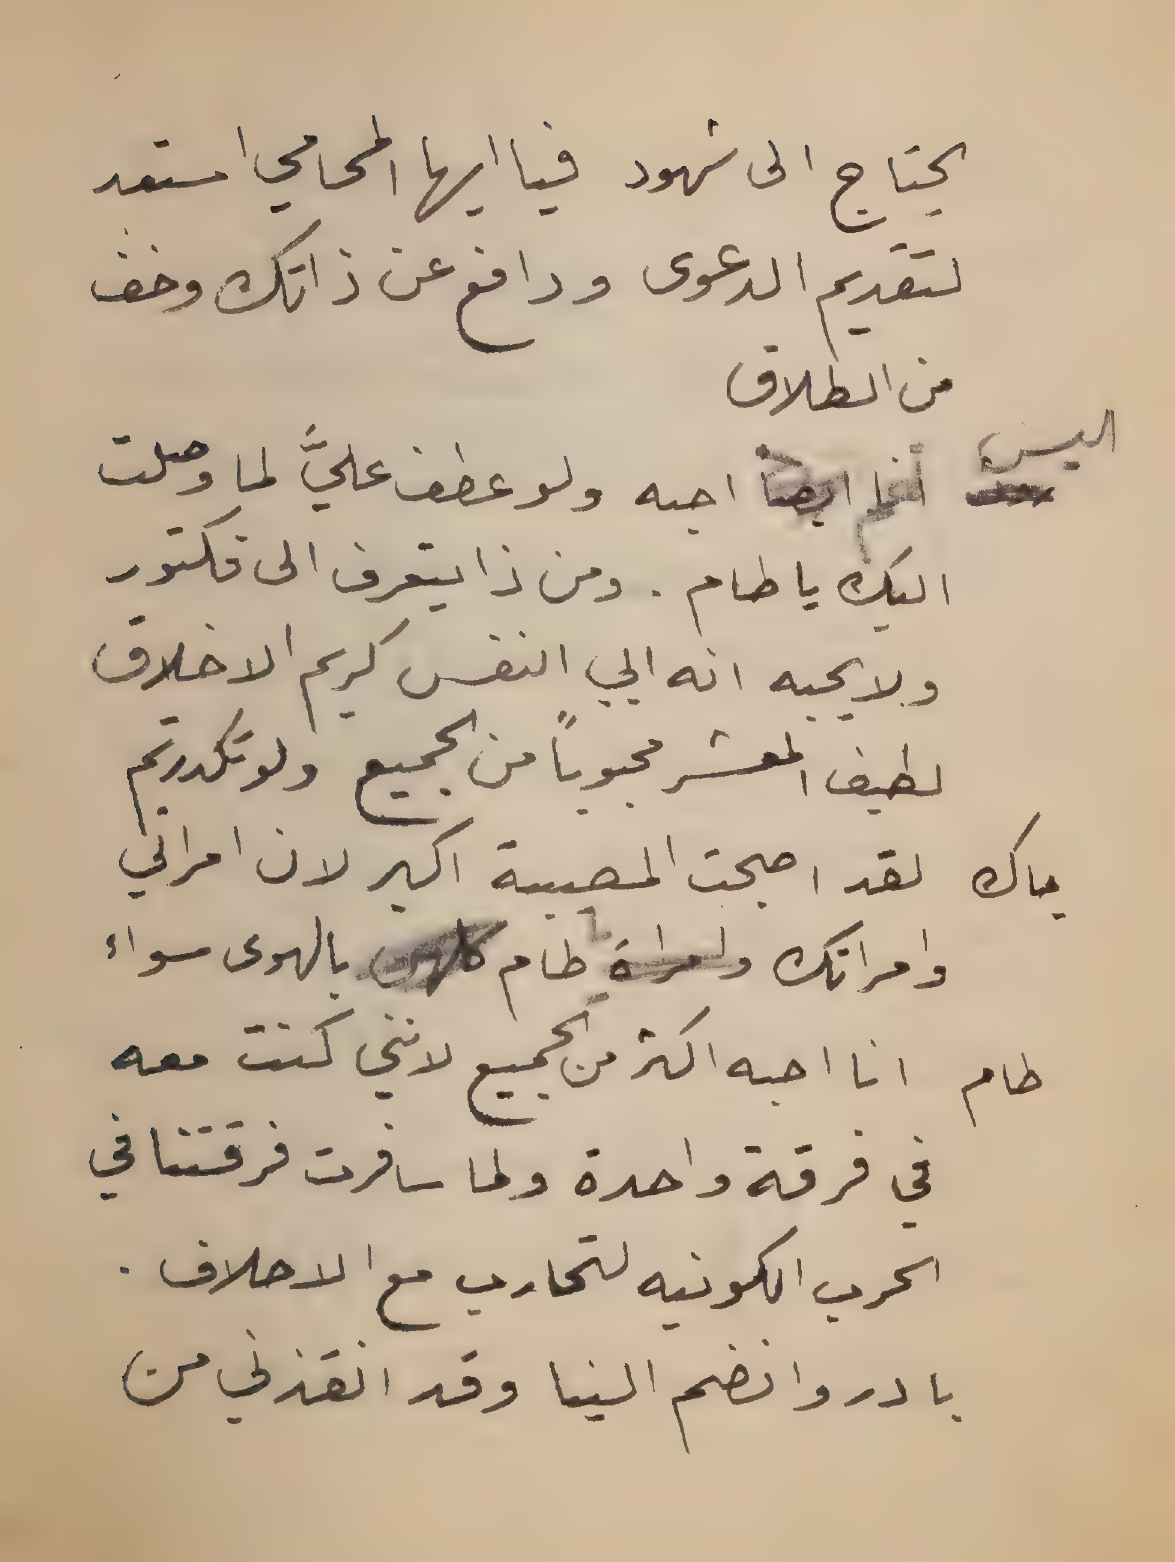 يحتاج الى شهود فيا ايها المحامي استعد
لتقديم الدعوى ودافع عن ذاتك وخف
من الطلاق
اليس انا ايضا احبه ولو عطف عليَّ لما وصلت
اليك يا طام . ومن ذا يتعرف الى فكتور
ولا يحبه انه ابي النفس كريم الاخلاق
لطيف المعشر محبوباً من الجميع ولو تكدرتم
جاك لقد اصبحت المصيبة اكبر لان امراتي
وامراتك وامراة طام كلهن بالهوى سواء
طام انا احبه اكثر من الجميع لانني كنت معه
في فرقة واحدة ولما سافرت فرقتنا في
الحرب الكونيه لتحارب مع الاحلاف .
بادر وانضم الينا وقد انقذني من